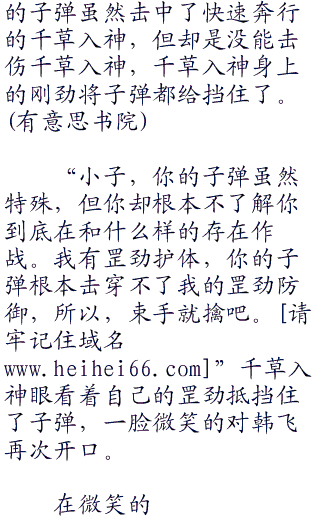 的子弹虽然击中了快速奔行
的千草入神，但却是没能击
伤千草入神，千草入神身上
的刚劲将子弹都给挡住了。
(有意思书院)
“小子，你的子弹虽然
特殊，但你却根本不了解你
到底在和什么样的存在作
战。我有罡劲护体，你的子
弹根本击穿不了我的罡劲防
御，所以，束手就擒吧。[请
牢记住域名
www.heihei66.com]”千草入
神眼看着自己的罡劲抵挡住
了子弹，一脸微笑的对韩飞
再次开口。
在微笑的